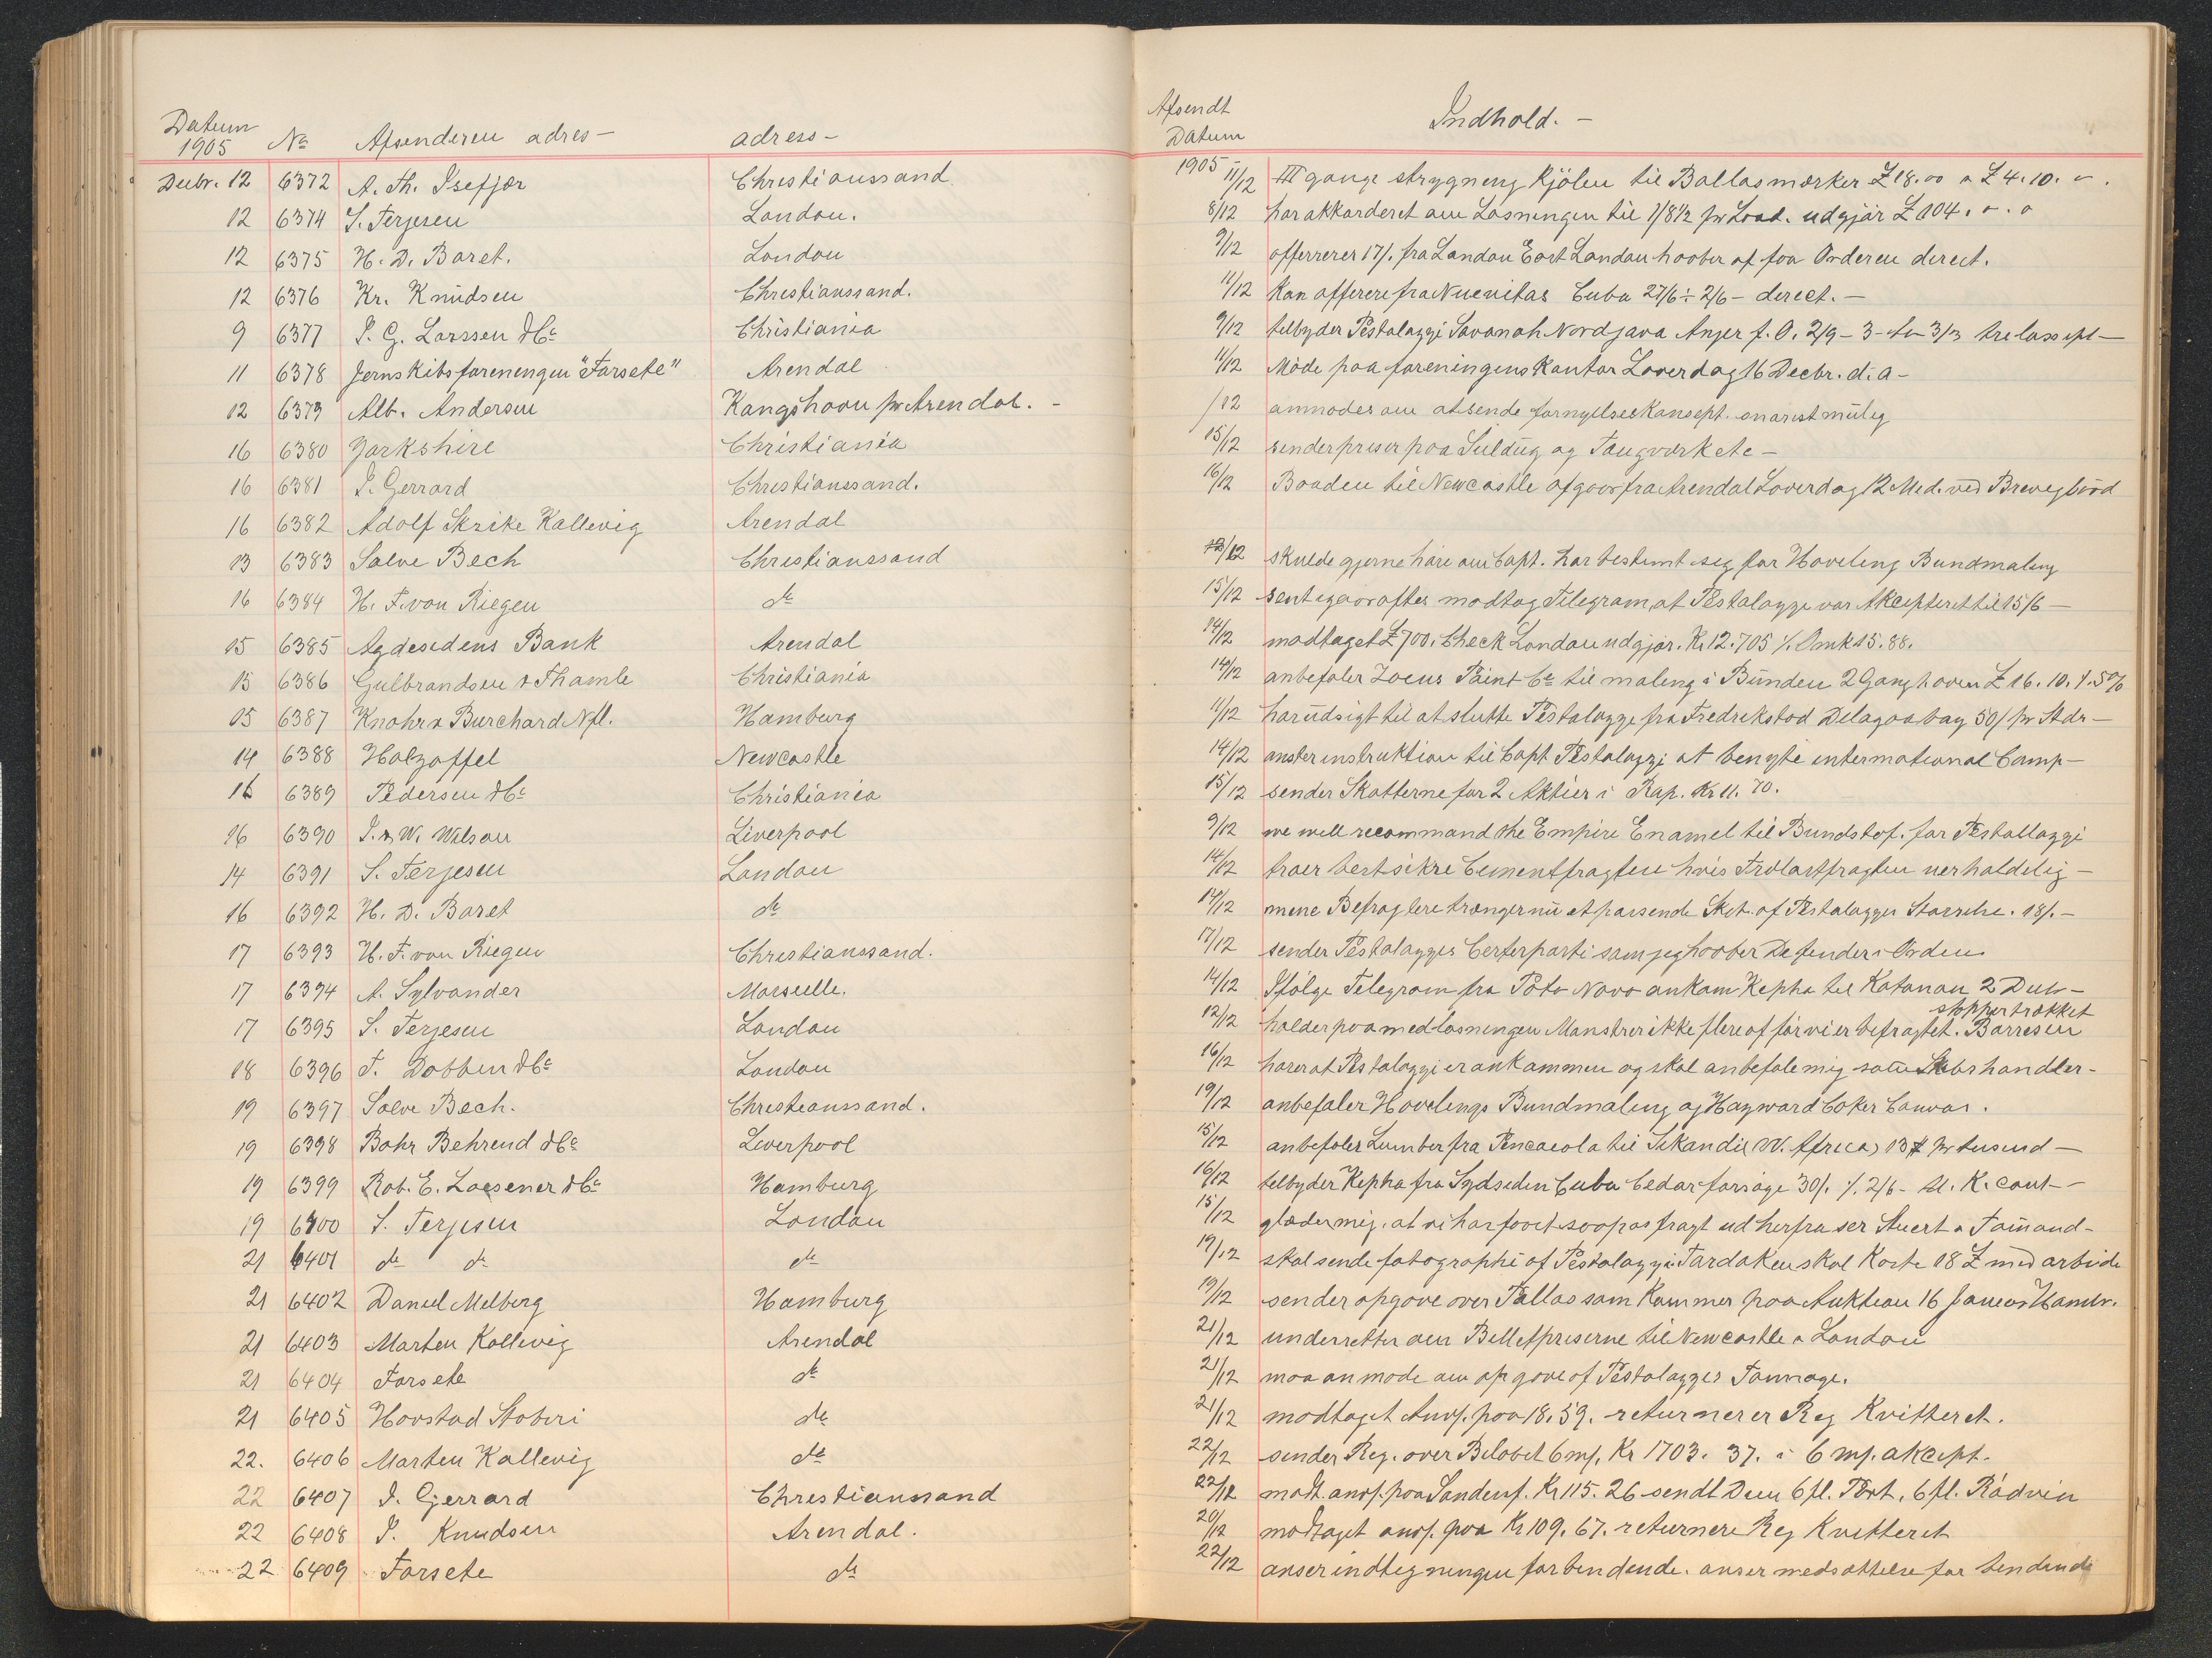 Datum 1905 No Afsenderen adres- adress-
Decbr. 12 6372 A. Th. Isefjær Christianssand
12 6374 S. Terjesen London.
12 6375 H. D. Baret. London
12 6376 Kr. Knudsen Christianssand.
9 6377 I. G. Larssen & Co Christiania
11 6378 Jernskibsforeningen "Farsete" Arendal
12 6379 Alb. Andersen Kangshavn pr Arendal. -
16 6380 Yorkshire Christiania
16 6381 I. Gerrard Christianssand.
16 6382 Adolf Skrike Kallevig Arendal
13 6383 Salve Bech Christianssand
16 6384 H. F. von Riegen do
15 6385 Agdesidens Bank Arendal
15 6386 Gulbrandsen & Thamle Christiania
15 6387 Knohr & Burchard Nfl. Hamburg
14 6388 Holzapffel Newcastle
16 6389 Pedersen & Co Christiania
16 6390 I. & W. Wilson Liverpool
14 6391 S. Terjesen London
16 6392 H. D. Baret do
17 6393 H. F. von Riegen Christianssand.
17 6394 A. Sylvander Marseille.
17 6395 S. Terjesen London
18 6396 T. Dobbin & Co London
19 6397 Salve Bech. Christianssand.
19 6398 Bahr Behrend & Co Liverpool
19 6399 Rob. E. Loesener & Co Hamburg
19 6400 S. Terjesen London
21 6401 do do do
21 6402 Daniel Melberg Hamburg
21 6403 Marten Kallevig Arendal
21 6404 Farsete do
21 6405 Hovstad Stoberi do
22. 6406 Marten Kallevig do
22 6407 I. Gjerrard Christianssand
22 6408 I. Knudsen Arendal.
22 6409 Farsete do
Afsendt Datum Indhold. -
1905 11/12 III gange strygning Kjölen til Ballasmærker £ 18.00 a £ 4.10. -.
8/12 har akkorderet om Losningen til 1/8 1/2 pr Load. udgjör £ 104. 0. 0
9/12 offerrerer 17/. fra London East London haaber at faa Orderen direct.
11/12 Kan offerere fra Nuevitas Cuba 27/6 ÷ 2/6 - direct. -
9/12 tilbyder Pestalozzi Savanah Nordjava Anjer f. O. 2/9 - 3 - 3/3 trelass
11/12 Möde paa foreningens Kontor Loverdag 16 Decbr. d. a -
/12 anmodes om at sende fornyelses Konsept. snarest mulig
15/12 sender priser paa Seildug og Taugværk etc -
16/12 Baaden til Newcastle afgaar fra Arendal Loverdag 12 Med. ved Brevigbord
13/12 skulde gjerne höre om Capt. har bestemt seg for Hoveling Bundmaling
15/12 sent igaaraftes modtog Telegram, at Pestalozzi var Akcepteret til 15/6 -
14/12 modtaget £ 700. Check London udgjör. Kr 12.705 /. Omk 15.88.
14/12 anbefaler Zoeus Paint Co til maling i Bunden 2 Gang h. oven £ 16.10. /. 5%
11/12 har udsigt til at slutte Pestalozzi fra Fredrekstad Delagoabay 50/ pr Stdr -
14/12 instruktion til Capt Pestalozzi at benytte international Comp -
15/12 sender Skatterne for 2 Aktier i Rap. Kr 11.70.
9/12 we well recommand the Empire Enamel til Bundstof. for Pestallozzi
14/12 troer bestsikre Cementfragten hvis Trælastfragten uerholdelig -
14/12 mene Befragtere trænger nu et passende Skib af Pestalozzis Størrelse. 18/. -
17/12 sender Pestalozzis Certerparti som jeg haaber De finder i Orden
14/12 Ifölge Telegram fra Porto Novo ankom Kepha til Kotonou 2 Deb -
12/12 holder paa med losningen Mönstrer ikke flere af för vi er befragtet. Barresen
stopper trækket
16/12 hörer at Pestalozzi er ankommen og skal anbefale mig som Skibshandler -
19/12 anbefaler Hovelings Bundmaling og Hayward Coker Canvas.
15/12 anbefaler Lumber fra Pencacola til Sekondii (W. Africa) 13 $ pr tusend -
16/12 tilbyder Kepha fra Sydseden Cuba Cedar forsöge 30/. /. 2/6 - U. K. cont -
15/12 glæder mig, at vi har faaet saapas fragt ud herfra
19/12 skal sende fotographi af Pestalozzi. skal Koste 18 £ med arbeide
19/12 sender opgave over Pallas som Kommer paa Auktion 16 Januar Hambr.
21/12 underretter om Billetpriserne til Newcastle a London
21/12 maa anmode om opgave af Pestalozzis Tonnage.
21/12 modtaget Anvf. paa 18.59. returnerer Reg Kvitteret.
22/12 sender Reg. over Belobet 6 mf. Kr 1703. 37. i 6 mf. akcept.
22/12 modt. anvf. paa Sandenf. Kr 115.26 sendt Dem 6 fl. Port, 6 fl. Rödvin
20/12 modtaget anvf. paa Kr 109.67. returnere Reg Kvitteret
22/12 anser indtegningen for bendende. anser medsættelse for bendende